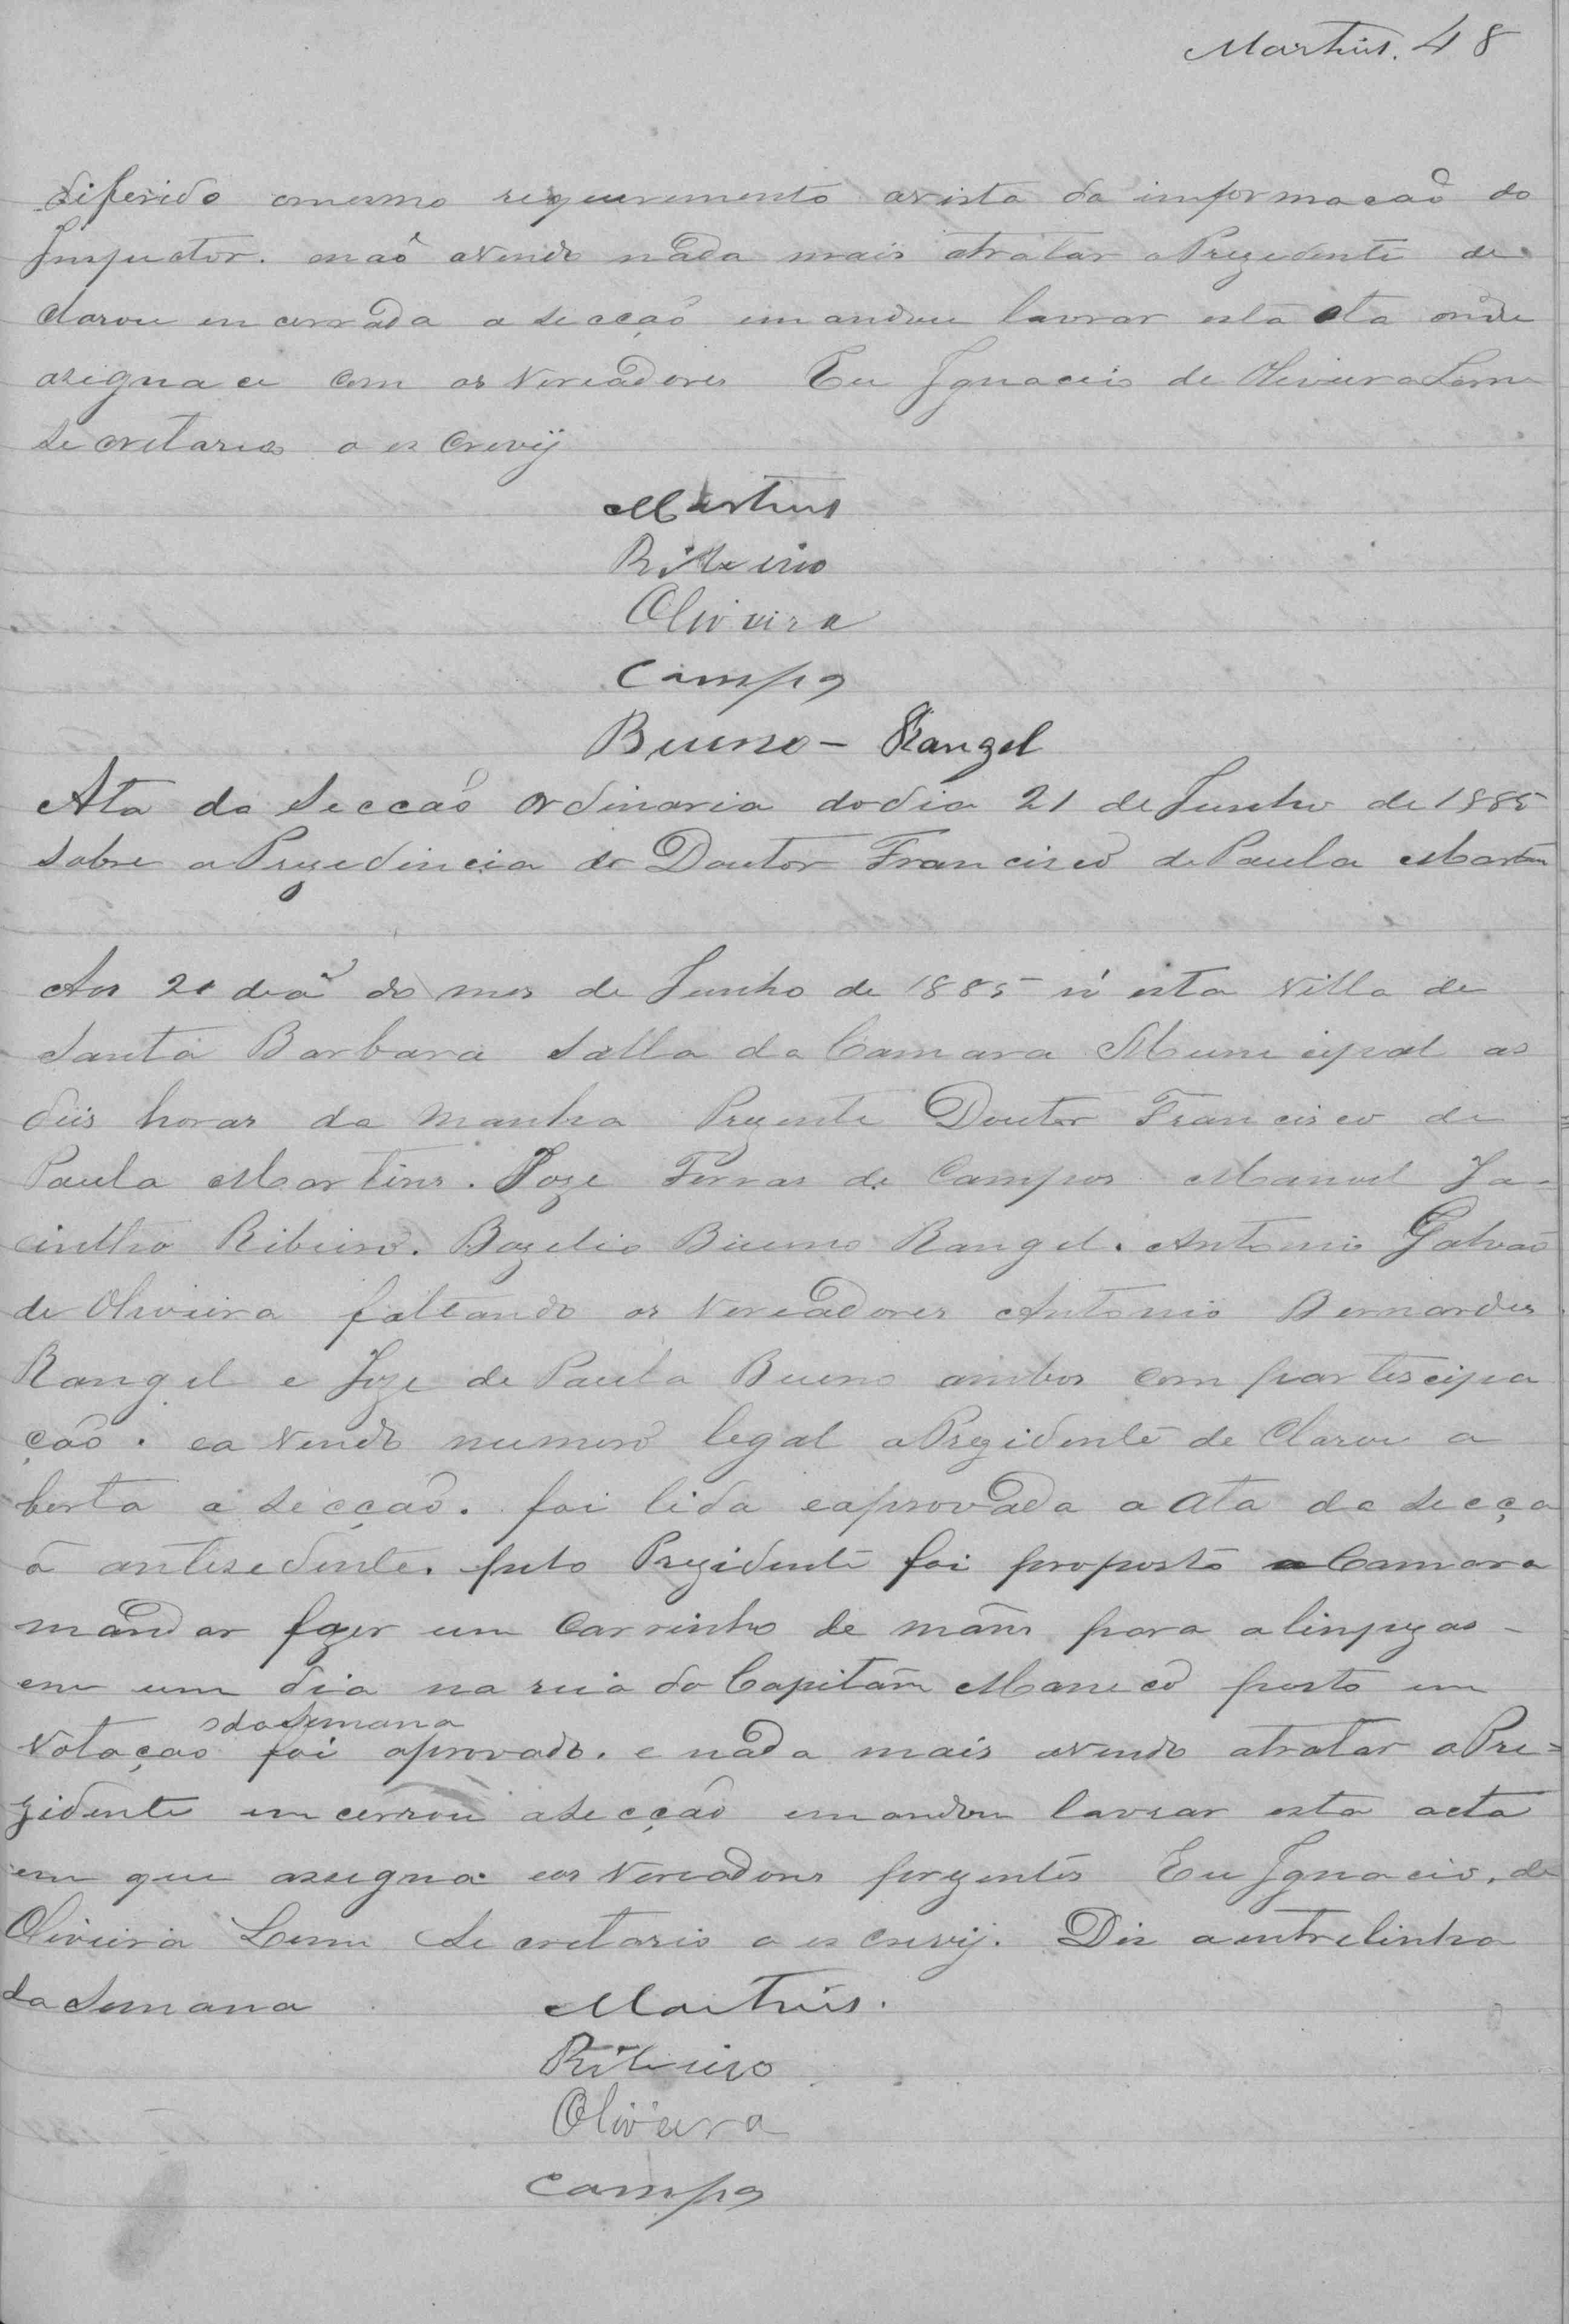 Martins. 48
diferido omesmo requerimento avista da informacaõ do
Inspector. enaõ avendo nada mais atratar o Prezedente de
clarou encerrada a secçaõ emandou lavrar esta ata onde
asigna ce com os Vereadores Eu Ignacio de Oliveira Leme
secretario o escrevij
Martins
Ribeiro
Oliveira
Campos
Bueno - Rangel
Ata da Seccaõ Ordinaria dodia 21 de Junho de 1885
sobre a Prezedincia do Doutor Francisco de Paula Martins
Aos 21 dia do mes de Junho de 1885 n'esta Villa de
Santa Barbara Salla da Camara Municipal as
deis horas da manha Prezente Doutor Francisco de
Paula Martins. Joze Ferras de Campos Manoel Ja-
cintho Ribeiro. Bazelio Bueno Rangel. Antonio Galvaõ
de Oliveira faltando os Vereadores Antonio Bernardes
Rangel e Joze de Paula Bueno ambos com partescipa
çaõ. ea vendo numero legal o Prezidente de Clarou a
berta a secçaõ. foi lida eaprovada a ata da secça
õ antesedente. pelo Prezidente foi proposto a Camara
mandar fazer um Carrinho de maõs para alinpezas -
em um dia na rua do Capitam Maneco posto em
da Semana
Votaçao foi aprovado. e nada mais avendo atratar o Pre=
zidente encerrou asecçaõ emandou lavrar esta acta
em que assigna eos Vereadores perzentes Eu Ignacio, de
Oliveira Leme Secretario o escrevij. Dis aentrelinha
da Semana
Martins.
Ribeiro
Oliveira
Campos